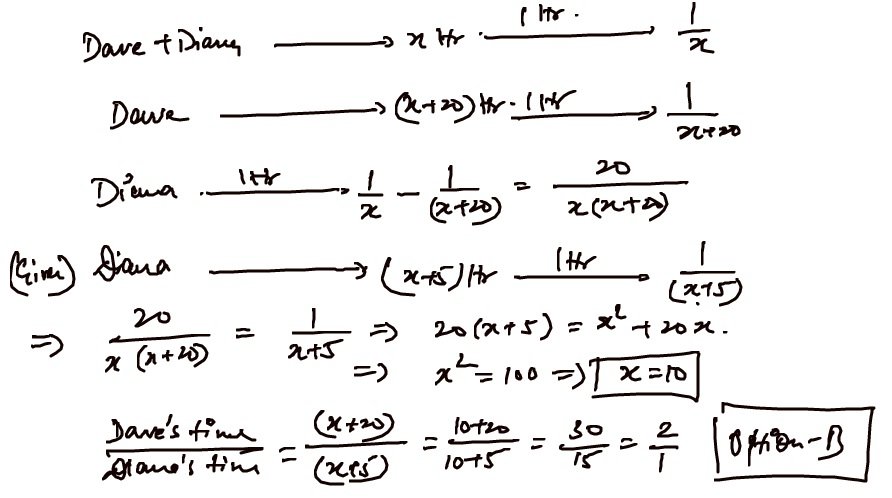 Dave + Diana → x Hr 1 Hr. → 1/x
Dave → (x+20) Hr. 1 Hr → 1/(x+20)
Diana 1 Hr → 1/x − 1/(x+20) = 20/(x(x+20))
(Given) Diana → (x+5) Hr 1 Hr → 1/(x+5)
⇒ 20/(x(x+20)) = 1/(x+5) ⇒ 20(x+5) = x² + 20x.
⇒ x² = 100 ⇒ x = 10
Dave's time/Diana's time = (x+20)/(x+5) = (10+20)/(10+5) = 30/15 = 2/1 Option-B